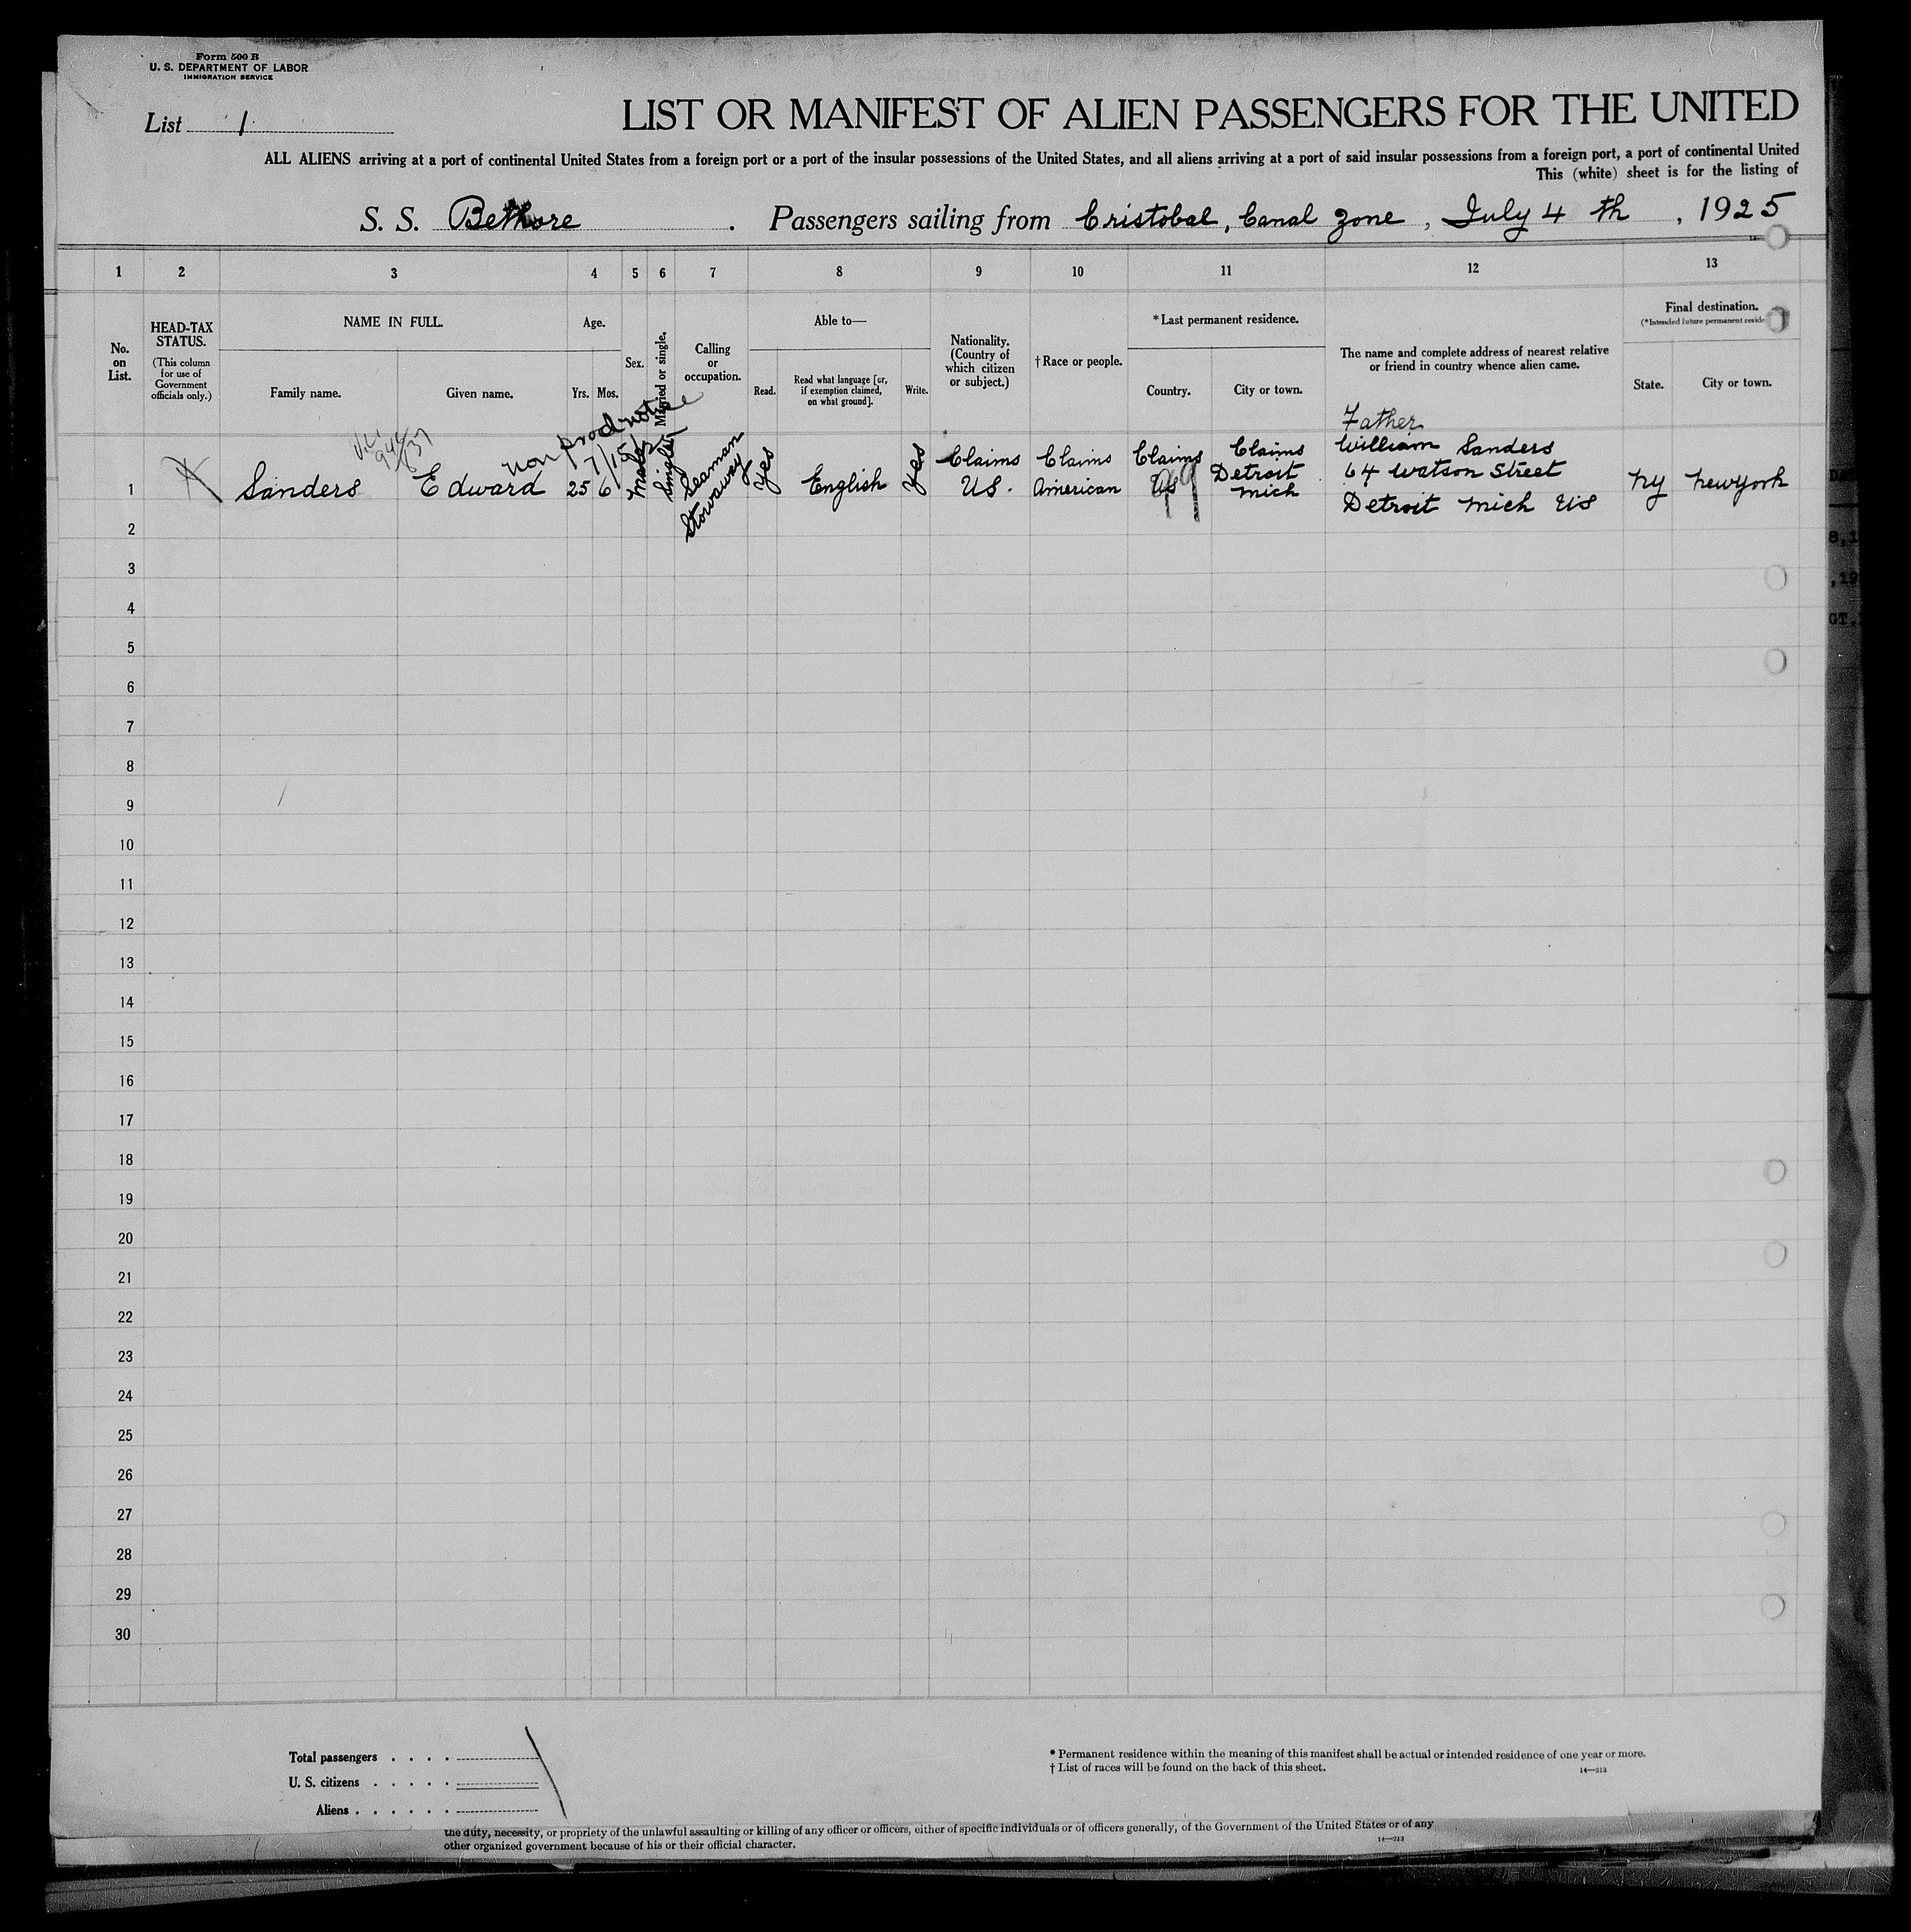 Form 500 B
U. S. DEPARTMENT OF LABOR
IMMIGRATION SERVICE
List 1
LIST OR MANIFEST OF ALIEN PASSENGERS FOR THE UNITED
ALL ALIENS arriving at a port of continental United States from a foreign port or a port of the insular possessions of the United States, and all aliens arriving at a port of said insular possessions from a foreign port, a port of continental United
This (white) sheet is for the listing of
S. S. Bethore . Passengers sailing from Cristobal, Canal Zone , July 4 th , 1925
1 2 3 4 5 6 7 8 9 10 11 12 13
No. on List.
HEAD-TAX STATUS.
(This column for use of Government officials only.)
NAME IN FULL.
Family name. Given name.
Age.
Yrs. Mos.
Sex.
Married or single.
Calling or occupation.
Able to—
Read. Read what language [or, if exemption claimed, on what ground]. Write.
Nationality. (Country of which citizen or subject.)
† Race or people.
* Last permanent residence.
Country. City or town.
The name and complete address of nearest relative or friend in country whence alien came.
Final destination.
(* Intended future permanent reside
State. City or town.
non productive
7/15/
Father
1 Sanders Edward 25 6 Male Single Seaman Stowaway Yes English Yes Claims US. Claims American Claims US Claims Detroit Mich William Sanders
64 Watson Street
Detroit Mich US
NY New York
2
3
4
5
6
7
8
9
10
11
12
13
14
15
16
17
18
19
20
21
22
23
24
25
26
27
28
29
30
Total passengers . . . .
U. S. citizens . . . . .
Aliens . . . . . .
* Permanent residence within the meaning of this manifest shall be actual or intended residence of one year or more.
† List of races will be found on the back of this sheet.
14—213
the duty, necessity, or propriety of the unlawful assaulting or killing of any officer or officers, either of specific individuals or of officers generally, of the Government of the United States or of any
other organized government because of his or their official character.
14—213